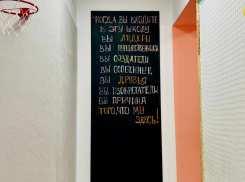 "КОГДА ВЫ ВХОДИТЕ
В ЭТУ ШКОЛУ
ВЫ ЛИДЕРЫ
ВЫ ПУТЕШЕСТВЕННИКИ
ВЫ СОЗДАТЕЛИ
ВЫ ОСОБЕННЫЕ
ВЫ ДРУЗЬЯ
ВЫ ИЗОБРЕТАТЕЛИ
ВЫ ПРИЧИНА
ТОГО, ЧТО МЫ
ЗДЕСЬ!